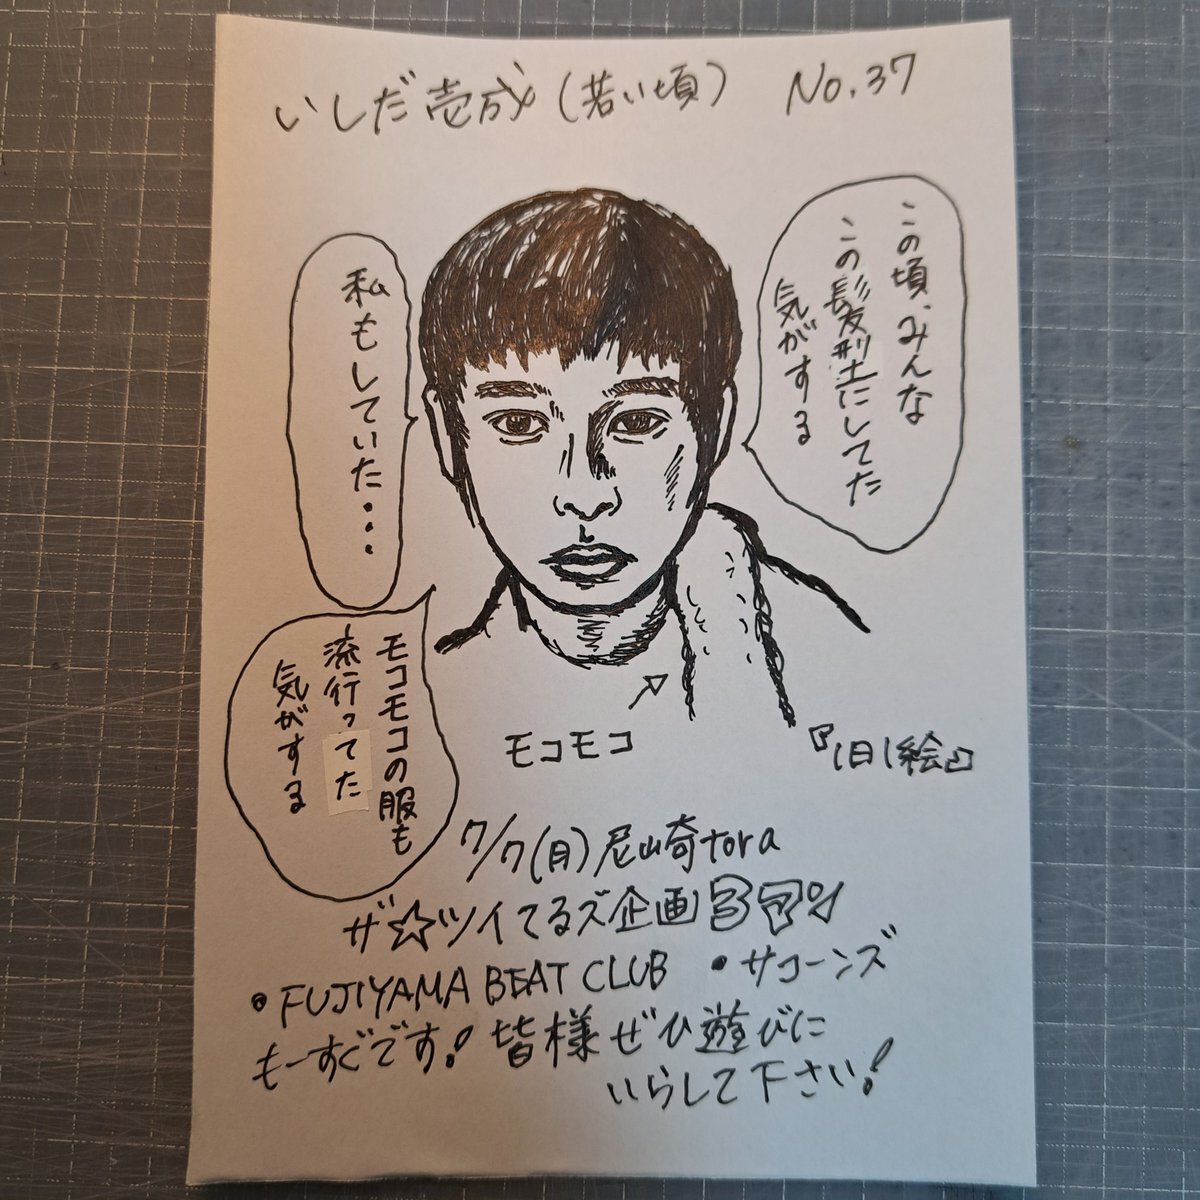 いしだ壱成(若い頃) No.37
この頃、みんな
この髪型にしてた
気がする
私もしていた・・・
モコモコの服も
流行ってた
気がする
モコモコ
『1日1絵』
7/7(月)尼崎tora
ザ☆ツイてるズ企画3マン
・FUJIYAMA BEAT CLUB ・サコーンズ
もーすぐです! 皆様ぜひ遊びに
いらして下さい!